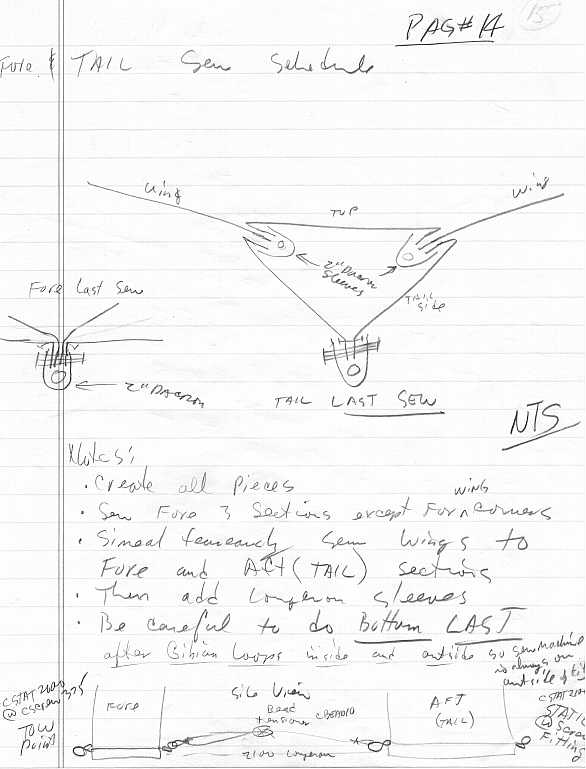 PAG# 14
15
Fore & TAIL Sew Schedule
Wing
Wing
TOP
2" DACRON
SLEEVES
TAIL
Side
Fore Last Sew
2" DACRON
TAIL LAST SEW
NTS
Notes:
• Create all Pieces
• Sew Fore 3 Sections except For wing corners
• Simeal teneously Sew Wings to
Fore and Aft (TAIL) sections
• Then add Longeron Sleeves
• Be careful to do Bottom LAST
after Loops inside and outside so sew Machine
is always on
outside of
CSTAT2100
@ CScrew 375
TOW
Point
Fore
Side View
Bead
tensioner
2100 Longeron
AFT
(TAIL)
STATIC
@ Screw
Fitting